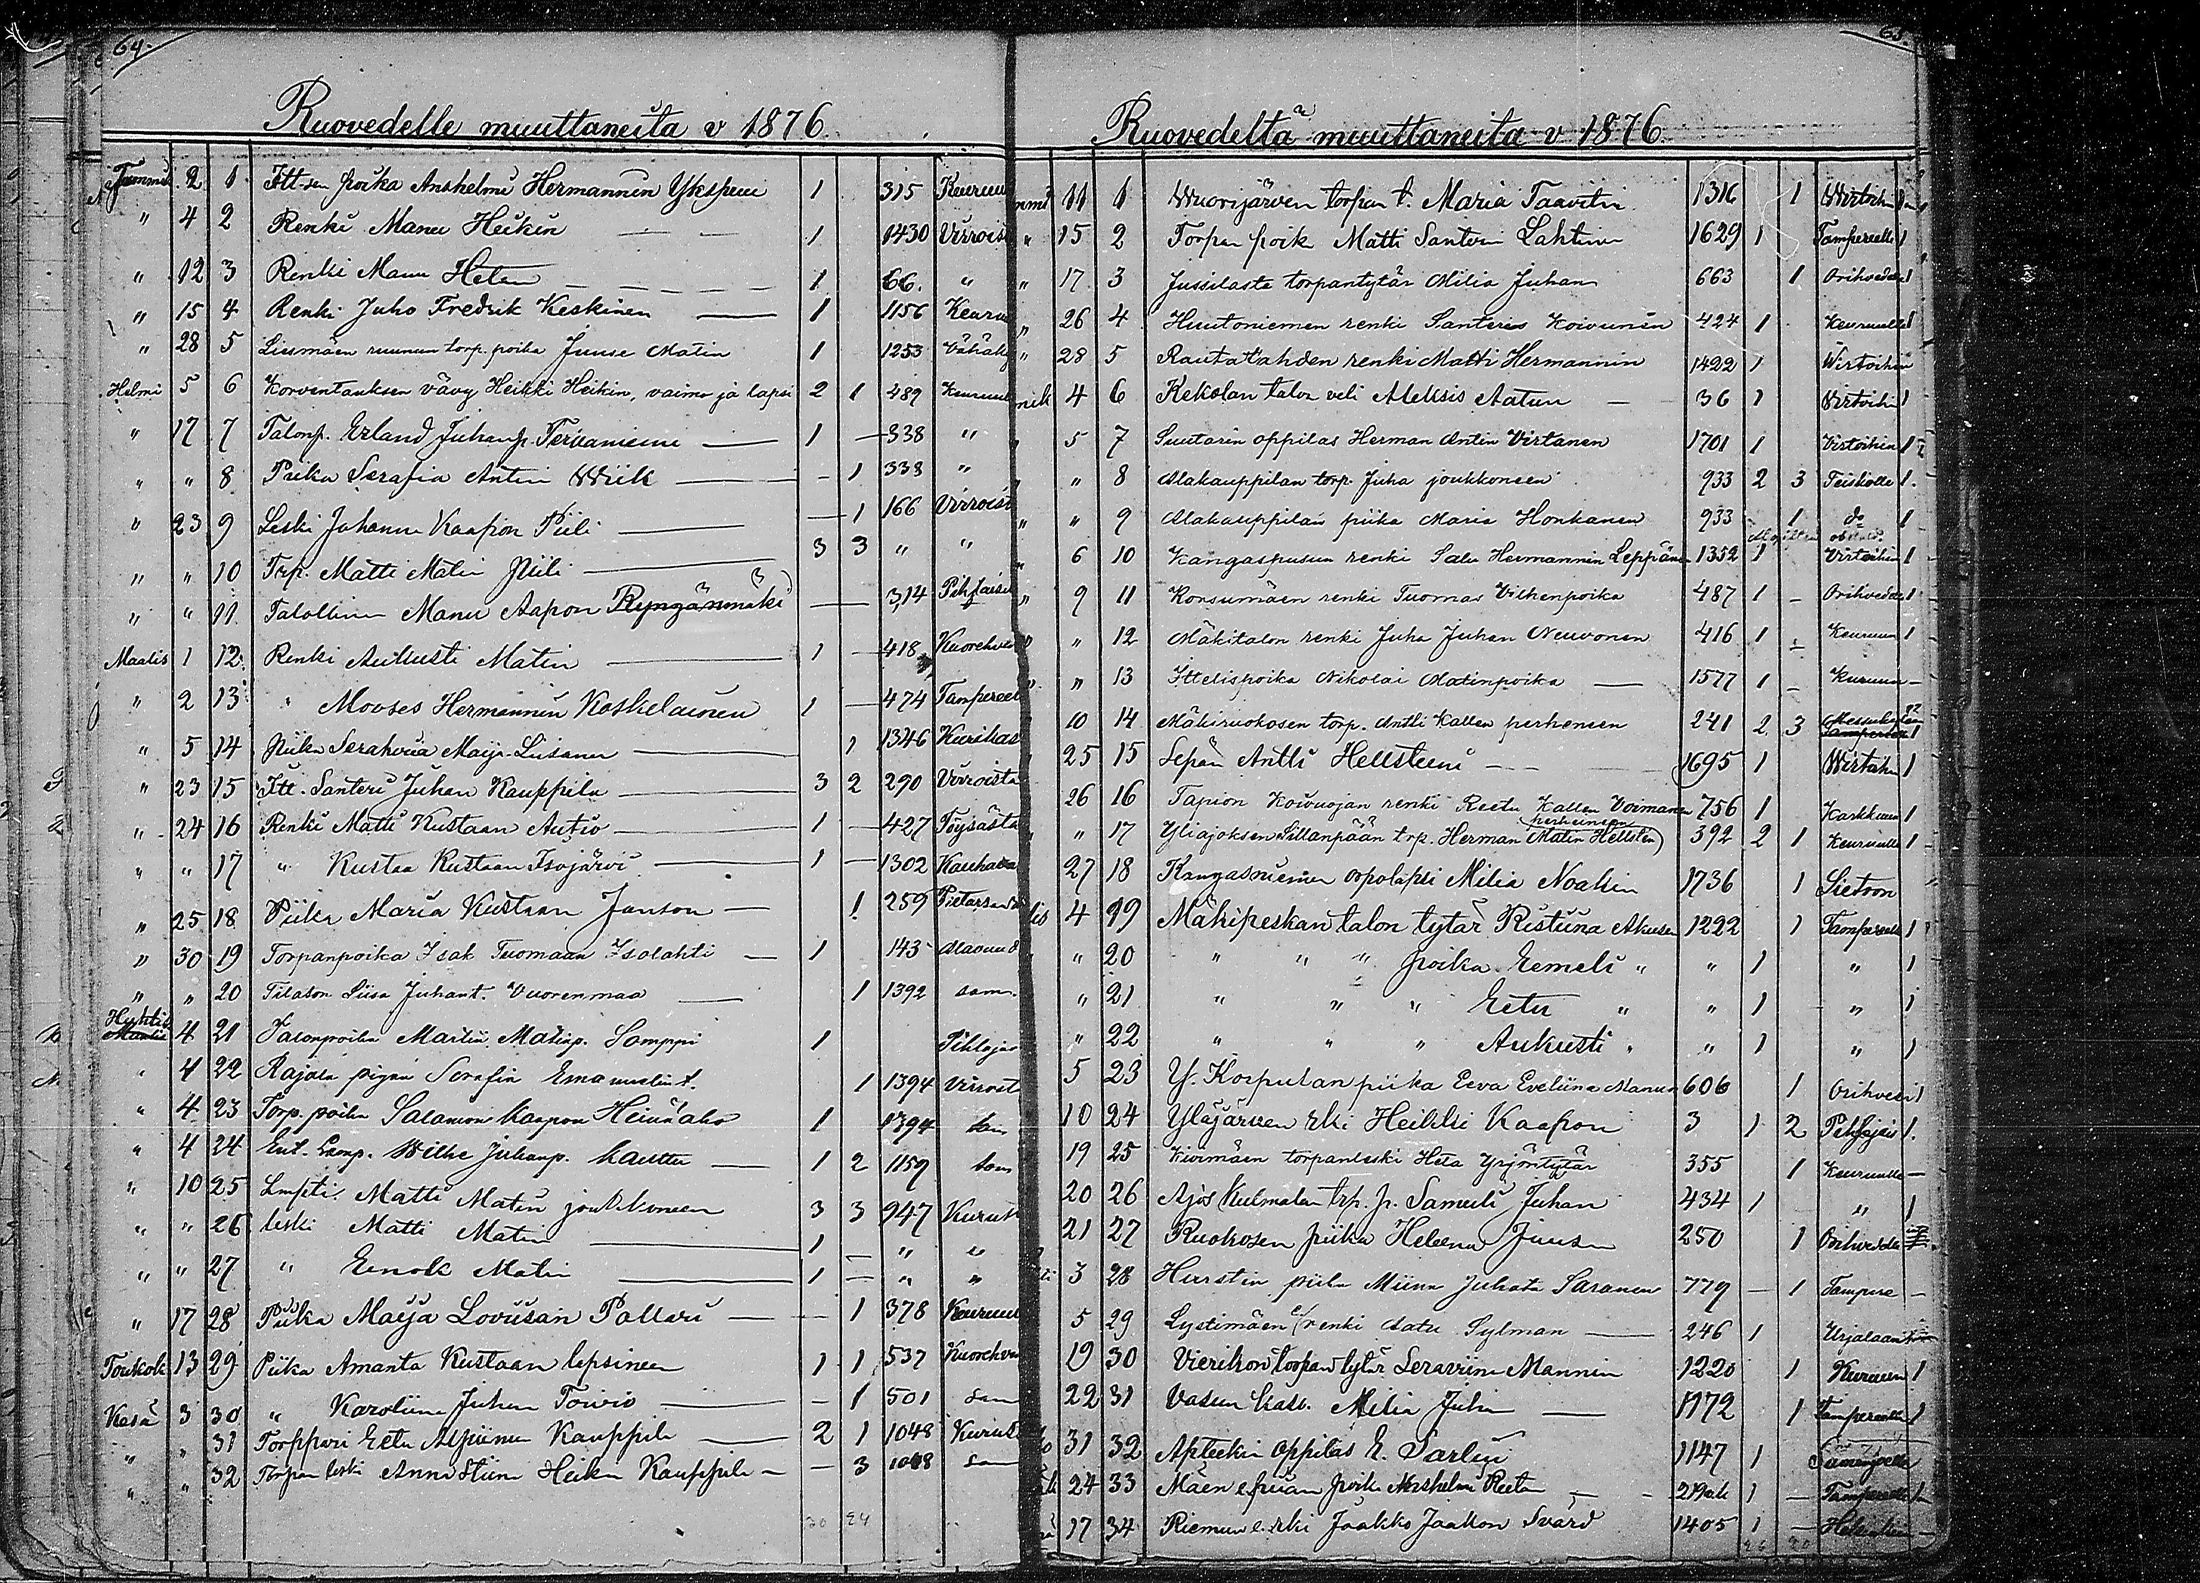 64.
Ruovedelle muuttaneita v 1876.
Tammi 2 1 Itt-sen poika Anshelmi Hermannin Ykspuu 1 315 Keuruu
" 4 2 Renki Manu Heikin 1 1430 Virroist
" 12 3 Renki Manu Helen 1 66. "
" 15 4 Renki Juho Fredrik Keskinen 1 1156 Keuru
" 28 5 Liismäen ruunun torp. poika Juuse Matin 1 1253
Helmi 5 6 Korventauksen vävy Heikki Heikin, vaimo ja lapsi 2 1 489 Keuruul
" 17 7 Talonp. Erland Juhanp. Tervaniemi 1 — 338 "
" " 8 Piika Serafia Antin Wiik — 1 338 "
" 23 9 Leski Johanna Kaapon Piili — 1 166 Virroist
" " 10 Trp. Matti Matin Piili 3 3 " "
" " 11 Talollinen Manu Aapon Ryngänmäki — 314 Pihlaise
Maalis 1 12 Renki Aukusti Matin 1 — 418 Kuorehve
" 2 13 " Mooses Hermannin Koskelainen 1 — 474 Tampereel
" 5 14 Piika Serahviia Maija-Liisanen 1 1346 Kurikas
" 23 15 Itt. Santeri Juhan Kauppila 3 2 290 Virroista
" 24 16 Renki Matti Kustaan Autio 1 — 427 Töysästä
" " 17 " Kustaa Kustaan Isojärvi 1 — 1302 Kauhava
" 25 18 Piika Maria Kustaan Janson — 1 259 Pietarsaa
" 30 19 Torpanpoika Isak Tuomaan Isolahti — 1 143 Alavuud
" " 20 Liisa Juhant. Vuorenmaa 1 1392 sam.
Huhtik 4 21 Talonpoika Martin Matinp. Somppi 1 Pihlaja
" 4 22 Rajala pigan Serafia Emanuelin t. 1 1394 Virroist
" 4 23 Torp. poika Salamon Kaapon Heinäaho 1 1394 sam
" 4 24 Ent. Lamp. Wilhe Juhanp. Kautta 1 2 1159 sam
" 10 25 Lmpti. Matti Matin joukkoneen 3 3 947 Kurust
" " 26 leski Matti Matin 1 — " "
" " 27 " Eenok Matin 1 — " "
" 17 28 Piika Maija Loviisan Pallari — 1 378 Keuruul
Toukok 13 29 Piika Amanta Kustaan lapsineen 1 1 537 Kuorehve
Kesä 3 30 " Karoliina Juhan Toivio — 1 501 sam
" " 31 Torppari Eetu Alpiinin Kauppila 2 1 1048 Kurust
" " 32 Torpan leski Anna Stiina Heikin Kauppila — 3 1048 sam
20 24
65.
Ruovedeltä muuttaneita v 1876.
11 1 Wuorijärven torpan t. Maria Taavitin 1316 1 Wirtoihin 1
" 15 2 Torpan poik Matti Santerin Lahtinen 1629 1 Tampereelle 1
" 17 3 Jussilasta torpantytär Milia Juhan 663 1 Orihvedelle 1
" 26 4 Huutoniemen renki Santeris Koivunen 424 1 Keuruulle 1
" 28 5 Rautalahden renki Matti Hermannin 1422 1 Wirtoihin
4 6 Kekolan talon veli Aleksis Aatun 36 1 Virtoihin 1
5 7 Suutarin oppilas Herman Antin Virtanen 1701 1 Virtoihin 1
" 8 Alakauppilan torp. Juha joukkoneen 933 2 3 Teiskolle 1.
" 9 Alakauppilan piika Maria Honkanen 933 1 do 1
6 10 Kangaspuun renki Salu Hermannin Leppänen 1352 1 Virtoihin 1
" 9 11 Korsumäen renki Tuomas Vilhenpoika 487 1 — Orihvedelle 1
" 12 Mäkitalon renki Juha Juhan Neuvonen 416 1 — Keuruun 1
" 13 Ittelispoika Nikolai Matinpoika 1577 1 — Kuruun —
10 14 Mäkiruokosen torp. Antti Kallen perheneen 241 2 3 Messukylään 1
25 15 Sepän Antti Hellsteeni 1695 1 Wirtoihin 1
26 16 Tapion Koivuojan renki Reetu Kallen Voimanen 756 1 Karkkuun 1
" 17 Yliajoksen Sillanpään trp. Herman Matin Hellsten perheineen 392 2 1 Keuruulle 1
27 18 Kangasniemen orpolapsi Milia Noakin 1736 1 Sietoon
4 19 Mäkipeskan talon tytär Ristiina Akusen 1222 1 Tampereelle 1
" 20 " " " poika Eemeli " " 1 " 1
" 21 " " " Eetu " " 1 " 1
" 22 " " " Aukusti " " 1 " 1
5 23 Y. Korpulan piika Eeva Eveliina Manun 606 1 Orihvesi 1
10 24 Yläjärven rki Heikki Kaapon 3 1 2 Pihlajais 1.
19 25 Kivimäen torpanleski Heta Yrjöntytär 355 1 Keuruulle —
20 26 Ajos Kulmalan trp. p. Samuli Juhan 434 1 " 1
21 27 Ruokosen piika Heleena Juusen 250 1 Orihvedelle
3 28 Hurstin piika Miina Juhata Saranen 779 — 1 Tampere —
5 29 Lystimäen renki Aatu Sylman 246 1 Urjalaan
19 30 Vierikon torpan tytär Seraviina Mannin 1220 1 Kuruun 1
22 31 Vasun kasv. Milia Juhan 1172 1 Tampereelle 1
31 32 Apteekin oppilas E. Sarlin 1147 1
24 33 Mäen poik. Anshelmi Reetun 1 — Tampereelle 1
17 34 Riemun e. rki Jaakko Jaakon Svärd 1405 1 — Helsinkiin —
26 20